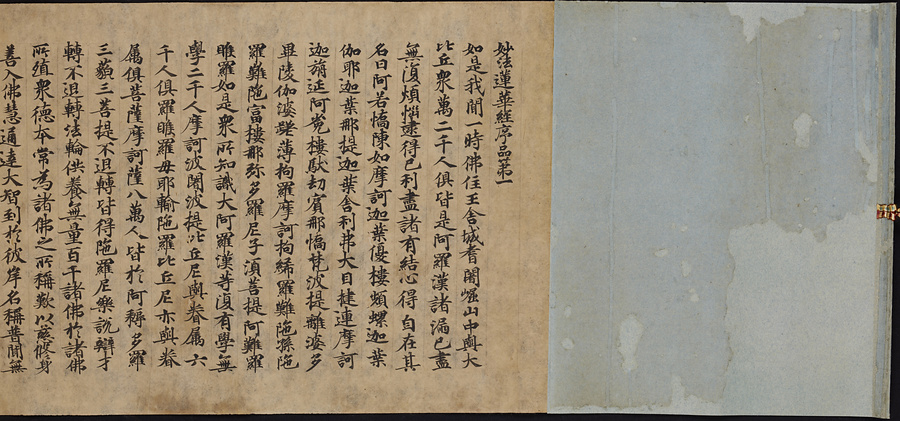 妙法蓮華経序品第一
如是我聞一時佛住王舎城耆闍崛山中與大
比丘衆萬二千人俱皆是阿羅漢諸漏已盡
無復煩惱逮得己利盡諸有結心得自在其
名曰阿若憍陳如摩訶迦葉優樓頻螺迦葉
伽耶迦葉那提迦葉舎利弗大目揵連摩訶
迦旃延阿㝹樓馱劫賓那憍梵波提離婆多
畢陵伽婆蹉薄拘羅摩訶拘絺羅難陁孫陁
羅難陁富樓那弥多羅尼子湏菩提阿難羅
睺羅如是衆所知識大阿羅漢等復有學無
學二千人摩訶波闍波提比丘尼與眷属六
千人俱羅睺羅母耶輸陁羅比丘尼亦與眷
属俱菩薩摩訶薩八萬人皆於阿耨多羅
三藐三菩提不退轉皆得陁羅尼樂說辯才
轉不退轉法輪供養無量百千諸佛於諸佛
所殖衆德本常為諸佛之所稱歎以慈修身
善入佛慧通達大智到於彼岸名稱普聞無